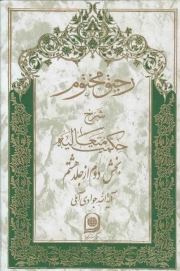 رحیق مختوم
شرح
حکمت متعالیه
بخش دوم از جلد هشتم
آیة الله جوادی آملی